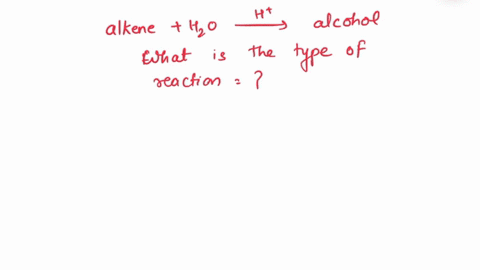 alkene + H₂O —H⁺→ alcohol
What is the type of
reaction = ?